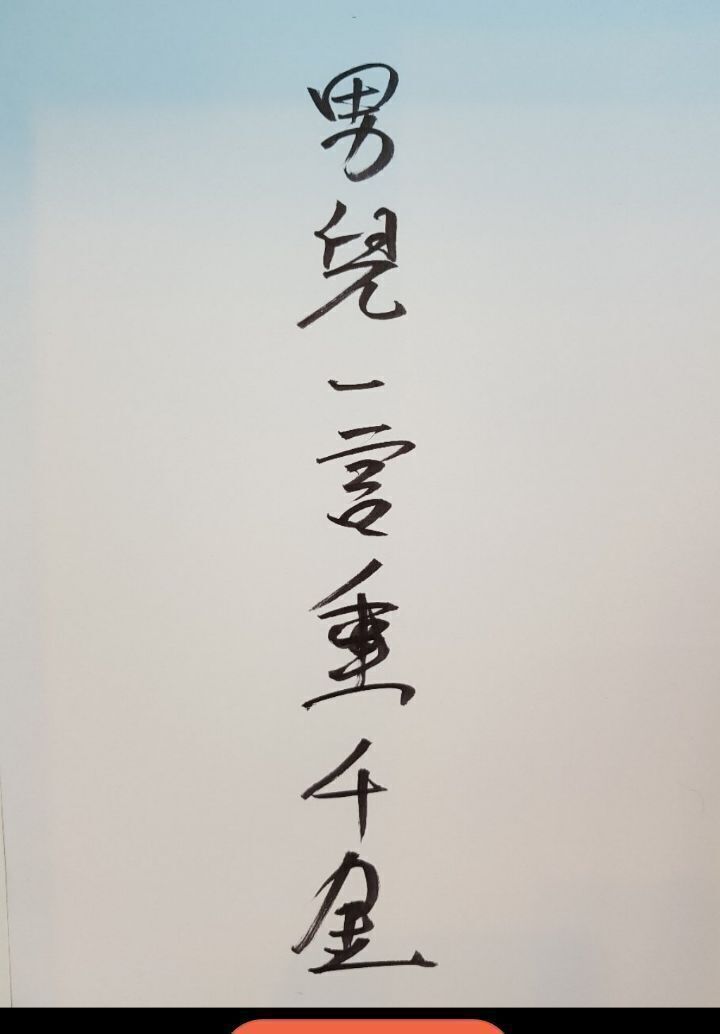 男兒一言重千金